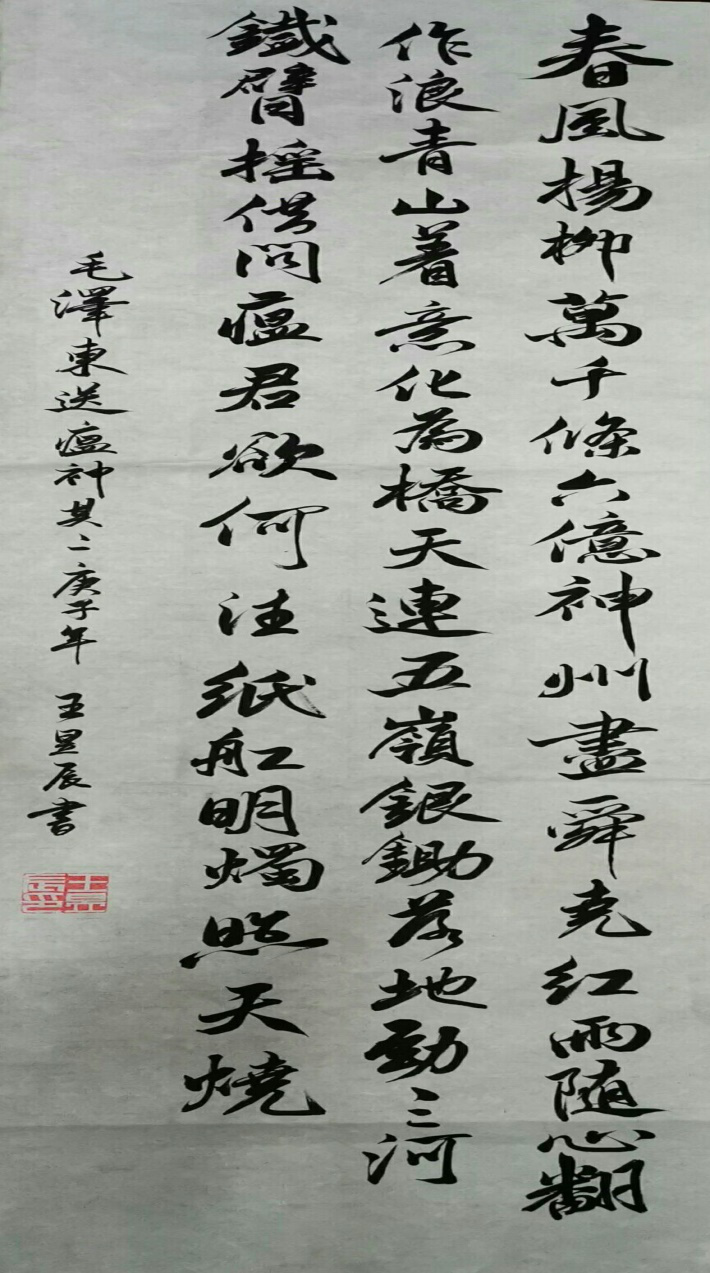 春風楊柳萬千條六億神州盡舜尭紅雨随心翻
作浪青山着意化為橋天連五嶺銀鋤落地動三河
鐵臂摇借問瘟君欲何往紙船明燭照天燒
毛澤東送瘟神其二庚子年 王昱辰書